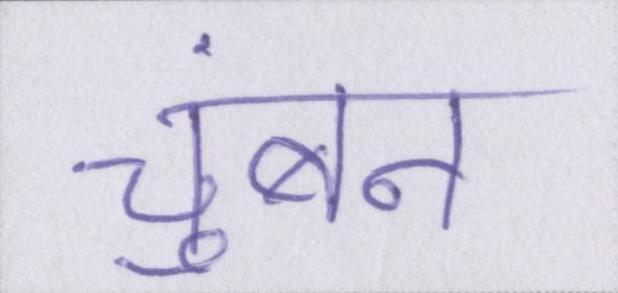 चुंबन